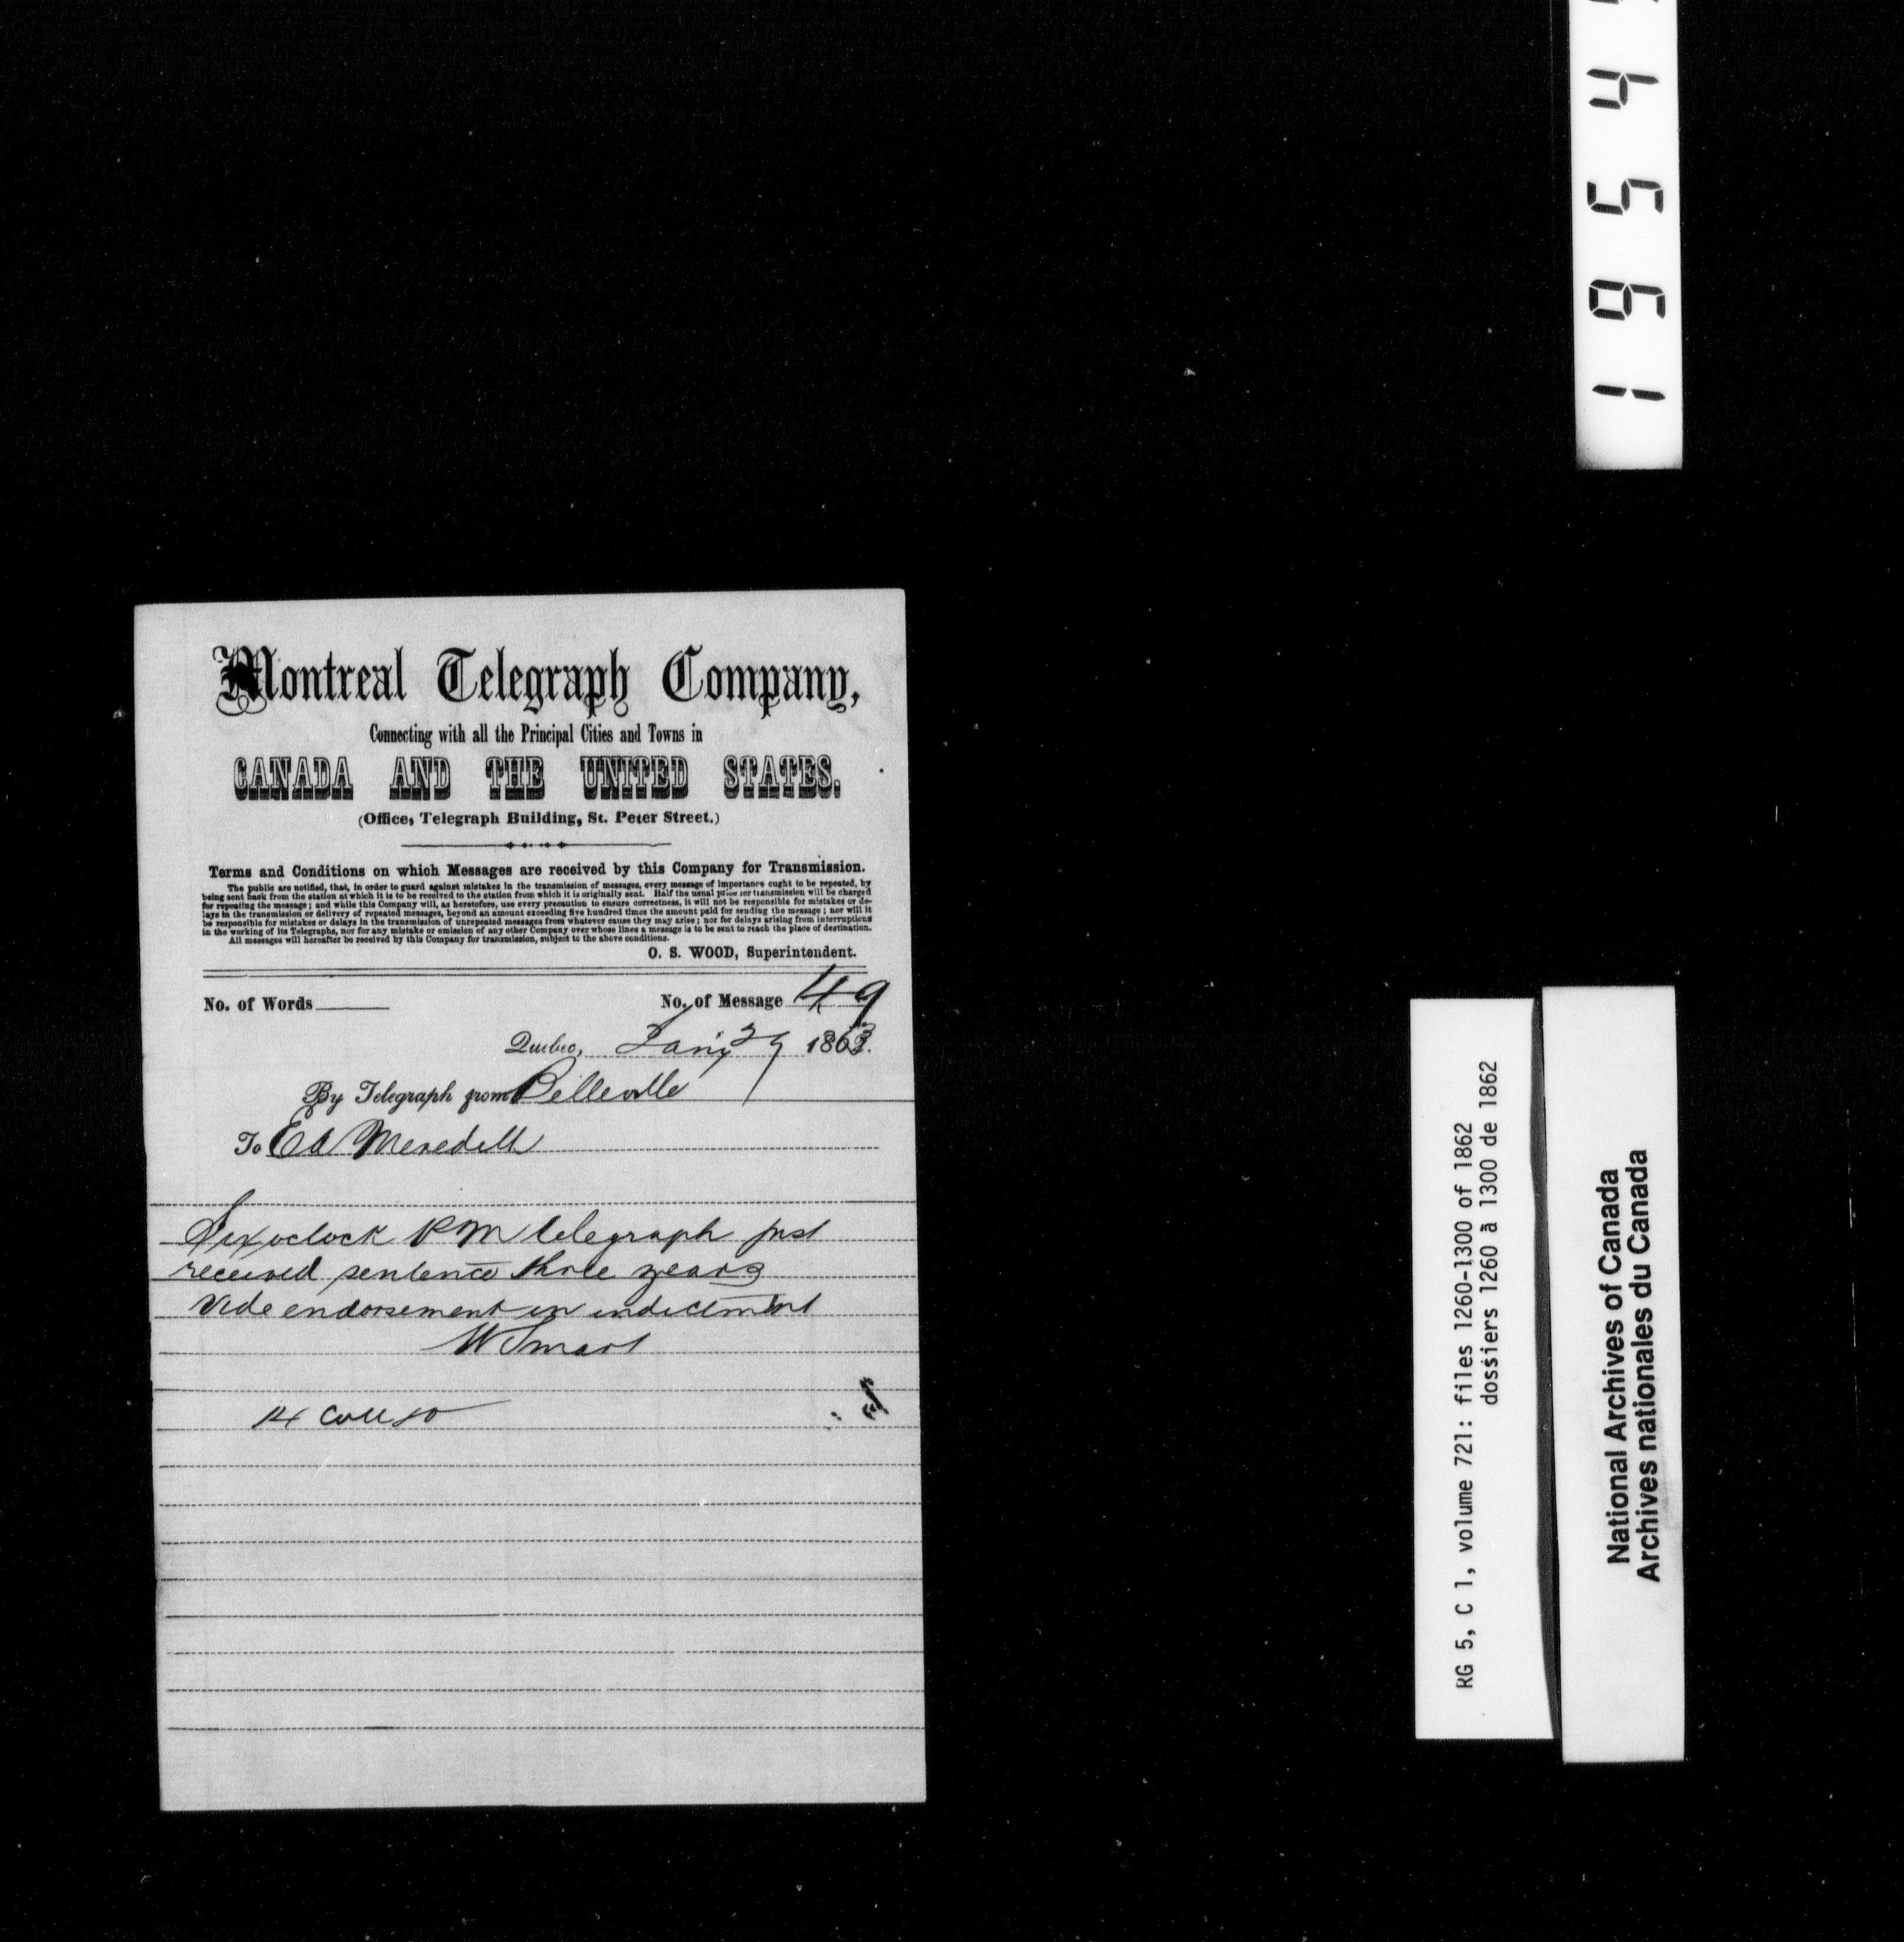 Montreal Telegraph Company,
Connecting with all the Principal Cities and Towns in
CANADA AND THE UNITED STATES.
(Office, Telegraph Building, St. Peter Street.)
Terms and Conditions on which Messages are received by this Company for Transmission.
The public are notified, that, in order to guard against mistakes in the transmission of messages, every message of importance ought to be repeated, by
being sent back from the station at which it is to be received to the station from which it is originally sent. Half the usual price for transmission will be charged
for repeating the message; and while this Company will, as heretofore, use every precaution to ensure correctness, it will not be responsible for mistakes or de-
lays in the transmission or delivery of repeated messages, beyond an amount exceeding five hundred times the amount paid for sending the message; nor will it
be responsible for mistakes or delays in the transmission of unrepeated messages from whatever cause they may arise; nor for delays arising from interruptions
in the working of its Telegraphs, nor for any mistake or omission of any other Company over whose lines a message is to be sent to reach the place of destination.
All messages will hereafter be received by this Company for transmission, subject to the above conditions.
O. S. WOOD, Superintendent.
No. of Words No. of Message 49
Quebec, Jany 27 1863.
By Telegraph from Belleville
To Ed Meredith
Six oclock PM telegraph just
received sentence three years
Vide endorsement on indictment
W Smart
14 Coll 50
1 9 5 4
RG 5, C 1, volume 721: files 1260-1300 of 1862
dossiers 1260 à 1300 de 1862
National Archives of Canada
Archives nationales du Canada